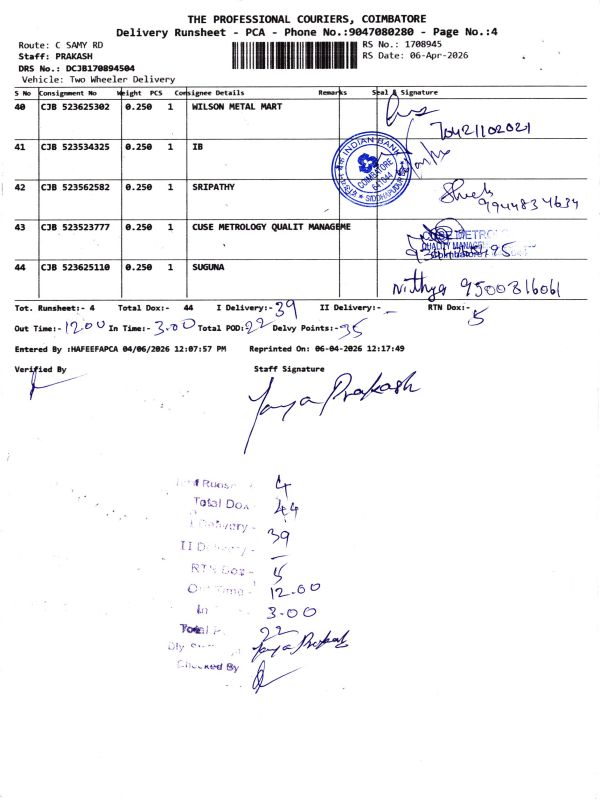 THE PROFESSIONAL COURIERS, COIMBATORE
Delivery Runsheet - PCA - Phone No.:9047080280 - Page No.:4
Route: C SAMY RD
RS No.: 1708945
Staff: PRAKASH
RS Date: 06-Apr-2026
DRS No.: DCJB170894504
Vehicle: Two Wheeler Delivery
S No Consignment No Weight PCS Consignee Details Remarks Seal & Signature
40 CJB 523625302 0.250 1 WILSON METAL MART
70421102021
41 CJB 523534325 0.250 1 IB
INDIAN BANK COIMBATORE 641044 SIDDHAPUDUR
42 CJB 523562582 0.250 1 SRIPATHY
9944834634
43 CJB 523523777 0.250 1 CUSE METROLOGY QUALIT MANAGEME
44 CJB 523625110 0.250 1 SUGUNA
Nithya 9500816061
Tot. Runsheet:- 4 Total Dox:- 44 I Delivery:- 39 II Delivery:- - RTN Dox:- 5
Out Time:- 12.00 In Time:- 3.00 Total POD: 22 Delvy Points:- 35
Entered By :HAFEEFAPCA 04/06/2026 12:07:57 PM Reprinted On: 06-04-2026 12:17:49
Verified By Staff Signature
Jaya Prakash
Runs 4
Total Dox 44
I Delivery - 39
II Delivery - -
RTN Dox - 5
Out Time - 12.00
In 3.00
Total 22
Jaya Prakash
Checked By